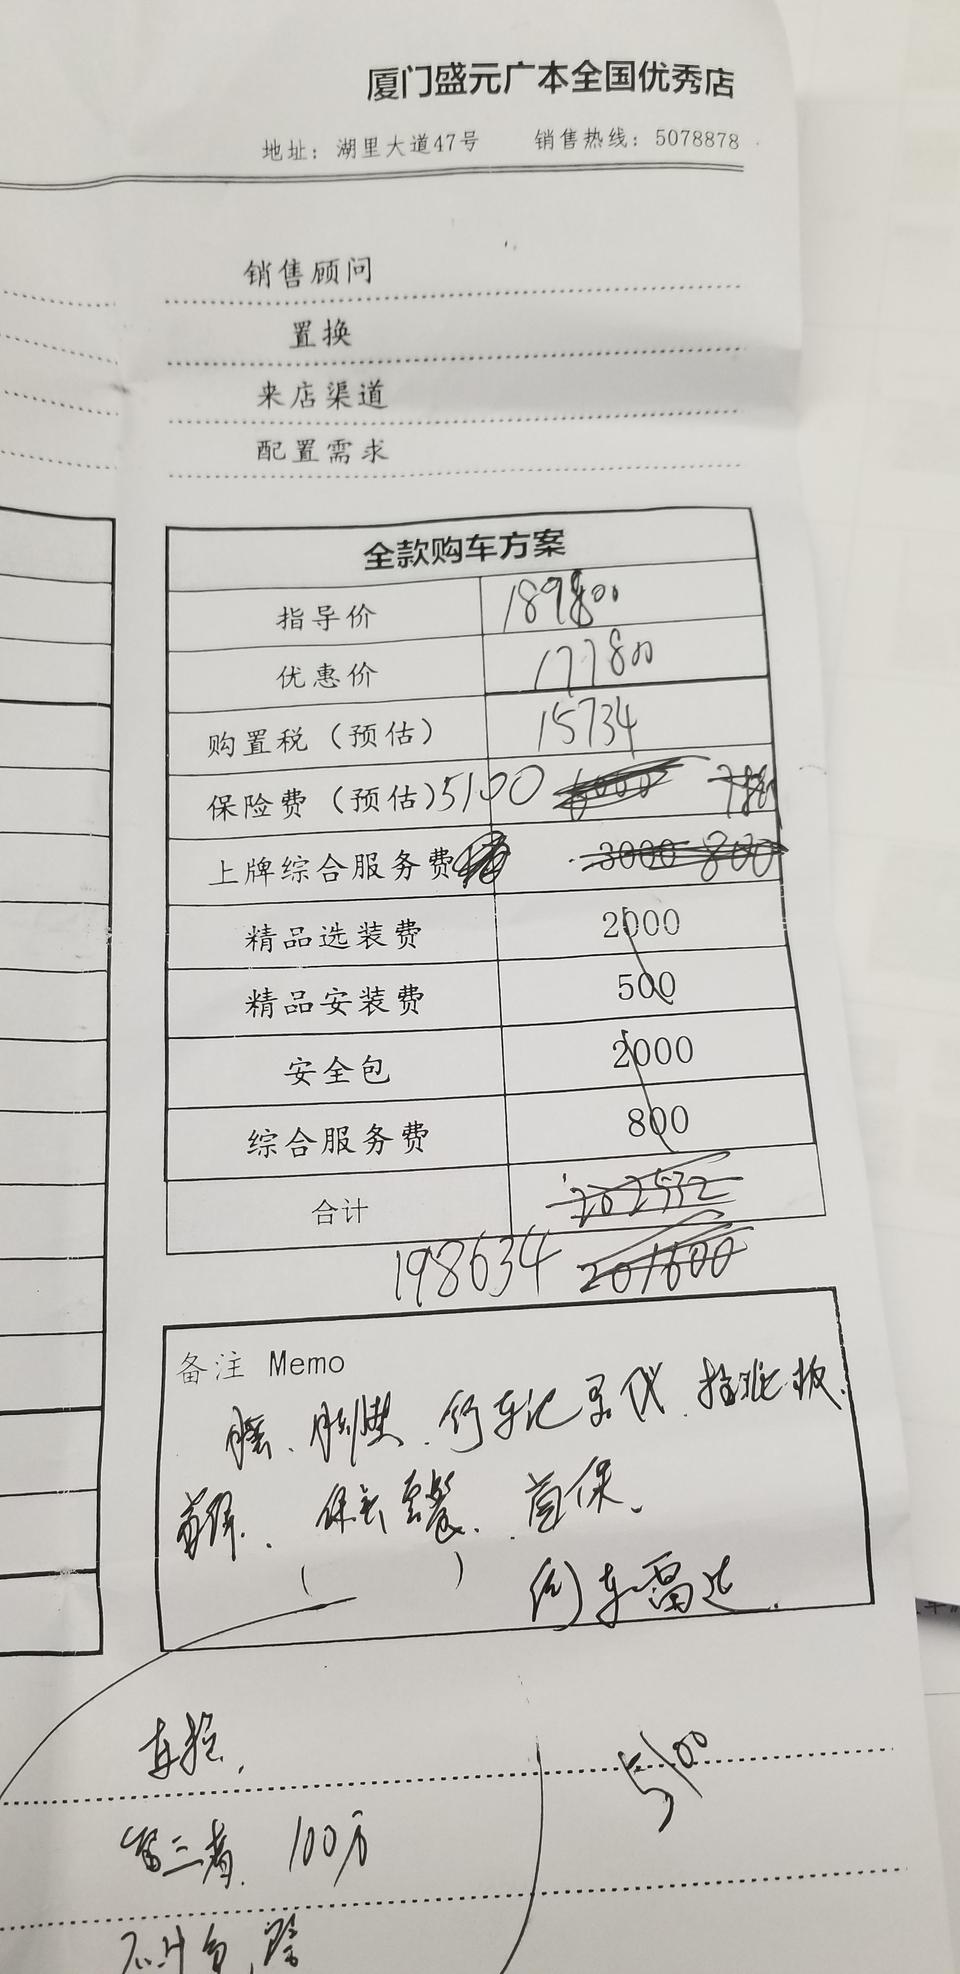 厦门盛元广本全国优秀店
地址：湖里大道47号 销售热线：5078878
销售顾问
置换
来店渠道
配置需求
全款购车方案
指导价 189800
优惠价 177800
购置税（预估） 15734
保险费（预估）5100 6000
上牌综合服务费 3000 800
精品选装费 2000
精品安装费 500
安全包 2000
综合服务费 800
合计 202532
198634 201600
备注 Memo
膜、脚垫、行车记录仪、挡泥板、
保养套餐、首保、
( ) 倒车雷达.
车损, 5100
三者 100万
不计免